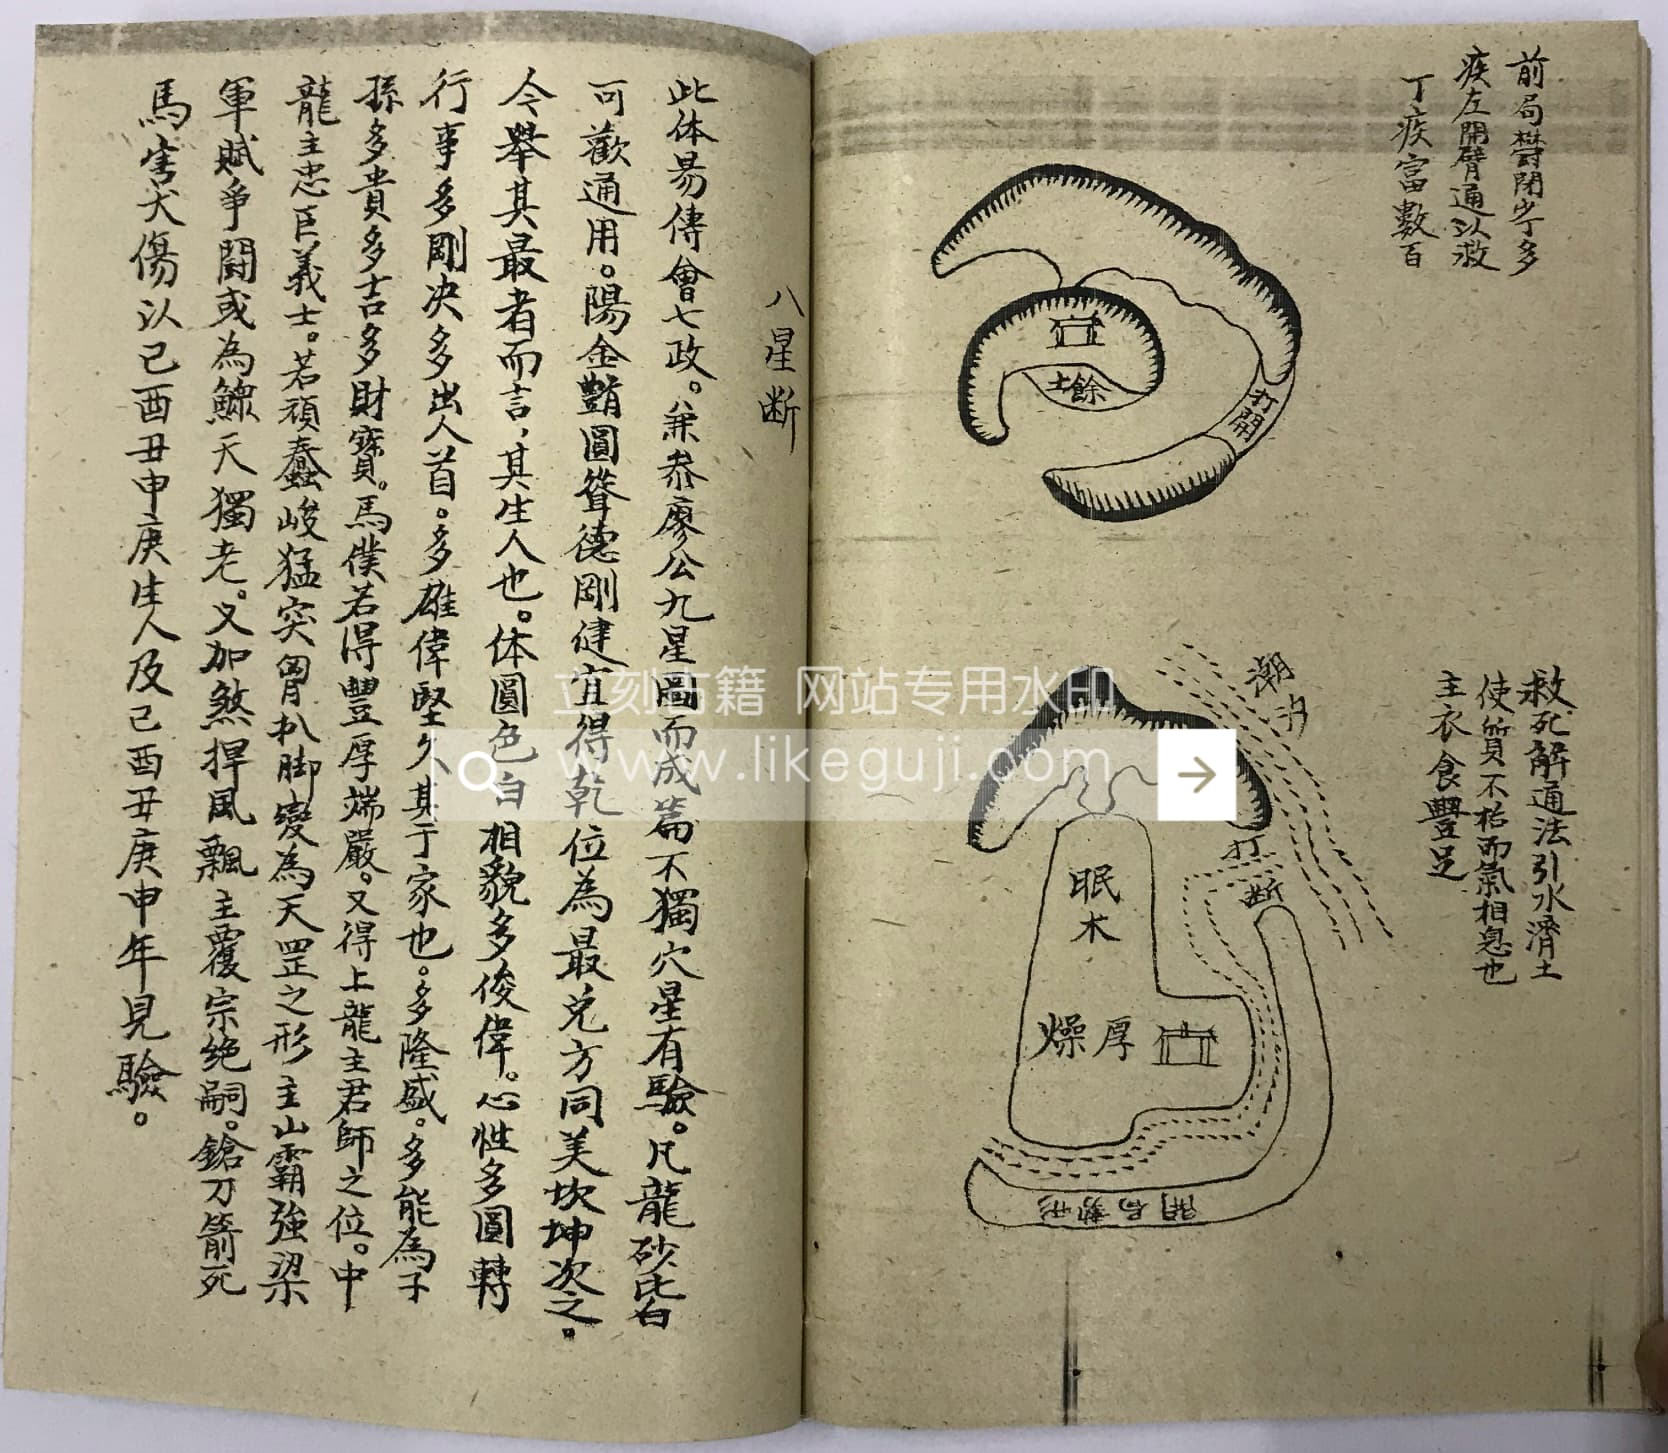 前局欝閉少丁多
疾左開臂通以救
丁疾富數百
餘土
打開
救死解通法引水濟土
使質不枯而氣相息也
主衣食豐足
潮水
打断
眠木
燥厚
開局勢形
八星断
此体易傳會七政。兼叅廖公九星圖而成篇不獨穴星有驗。凡龍砂皆
可歡通用。陽金艷圓聳德剛健宜得乾位為最兑方同美坎坤次之。
今舉其最者而言，其生人也。体圓色白相貌多俊偉。心性多圓轉
行事多剛决多出人首。多雄偉堅久其于家也。多隆盛。多能為子
孫多貴多吉多財寶。馬僕若得豐厚端嚴。又得上龍主君師之位。中
龍主忠臣義士。若頑蠢峻猛突胃扒脚變為天罡之形主山霸強梁
軍賦爭鬪或為鰥天獨老。又加煞捍風飄主覆宗绝嗣。鎗刀箭死
馬害犬傷以己酉丑申庚生人及己酉丑庚申年見驗。
立刻古籍 网站专用水印
www.likeguji.com